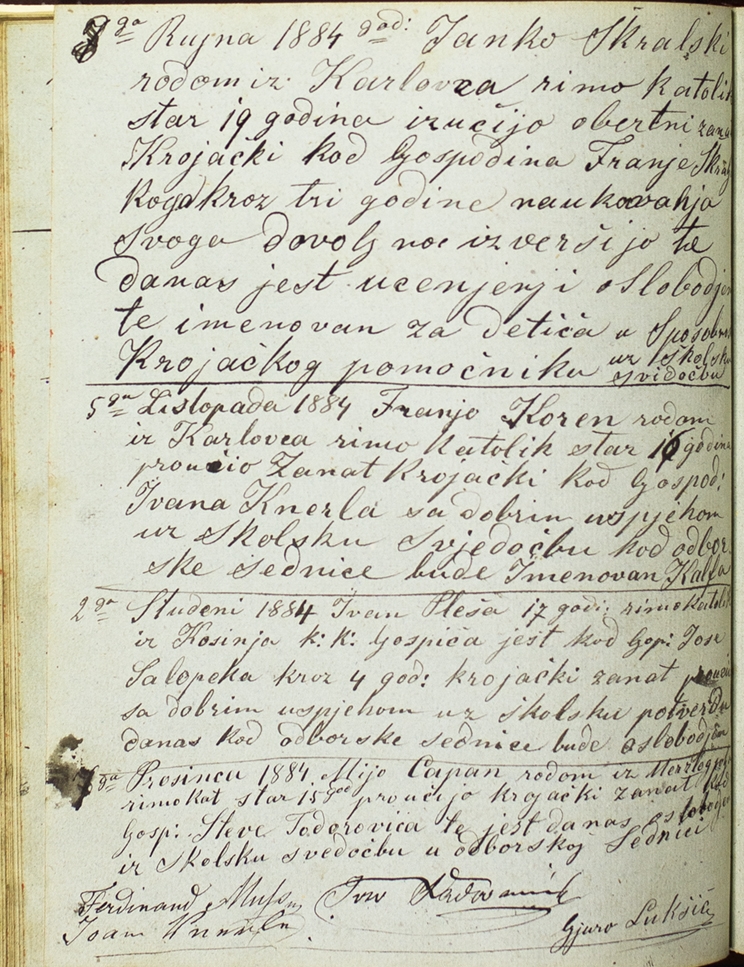 ga Rujna 1884 god: Janko Škralski
rodom iz Karlovca rimo katolik
star 19 godina izučijo obertni zana
Krojački kod Gospodina Franje Skral
Koga kroz tri godine naukovahja
svoga dovolj noe izveršijo te
danas jest ucenjenji oslobodjen
te imenovan za detića u Sposobno
Krojačkog pomoćniku uz školsku
svidočbu
5 ga Listopada 1884 Franjo Koren rodom
iz Karlovca rimo katolik star godina
proucio Zanat Krojački kod Gospod:
Ivana Knerla sa dobrim uspjehom
uz Skolsku Svjedočbu kod odbor
ske sednice bude Imenovan Kalfa
2 ga Studeni 1884 Ivan Pleša 17 godi: rimokatolik
iz Kosinja k: k: Gospića jest kod Gop: Jose
Salopeka kroz 4 god: krojački zanat proucio
sa dobrim uspjehom uz školsku potverdu
danas kod odborske sednice bude oslobodjen
ga Prosincu 1884 Mijo Capan rodom iz
rimokat star 15 god proučijo krojački zanat kod
Gosp: Steve Todorovića te jest danas oslobodjen
iz skolsku svedočbu u odborskoj Sednici
Ferdinand
Gjuro Lukšić